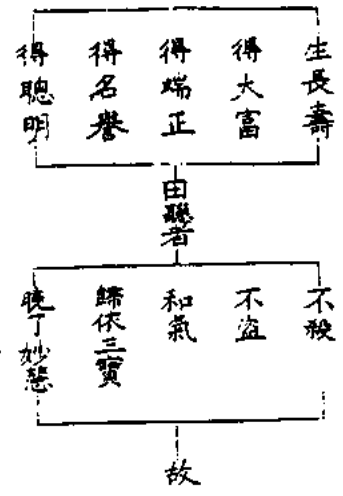 生長壽
得大富
得端正
得名譽
得聰明
由聽者
不殺
不盜
和氣
歸依三寶
曉了妙慧
故